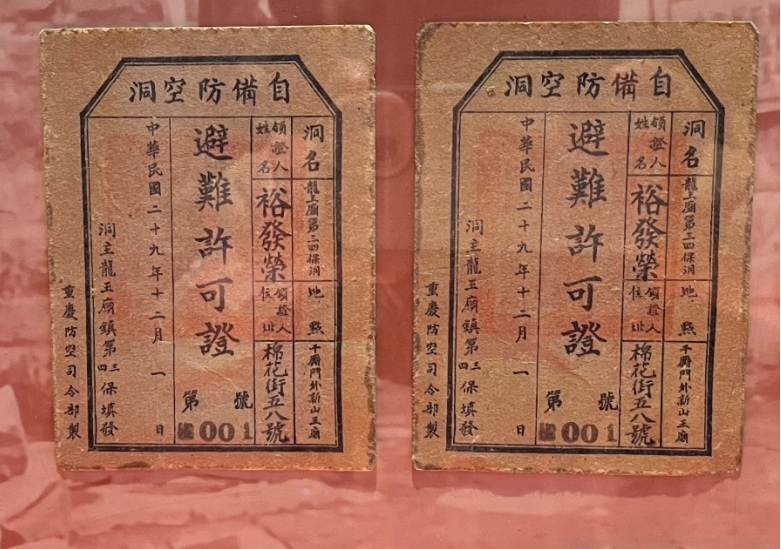 自備防空洞
洞名
龍王廟第三四保洞
地點
千厮門外新山王廟
領證人姓名
裕發榮
領證人住址
棉花街五八號
避難許可證
第 號
001
中華民國二十九年十二月一日
洞主龍王廟鎮第三四保填發
重慶防空司令部製
自備防空洞
洞名
龍王廟第三四保洞
地點
千厮門外新山王廟
領證人姓名
裕發榮
領證人住址
棉花街五八號
避難許可證
第 號
001
中華民國二十九年十二月一日
洞主龍王廟鎮第三四保填發
重慶防空司令部製